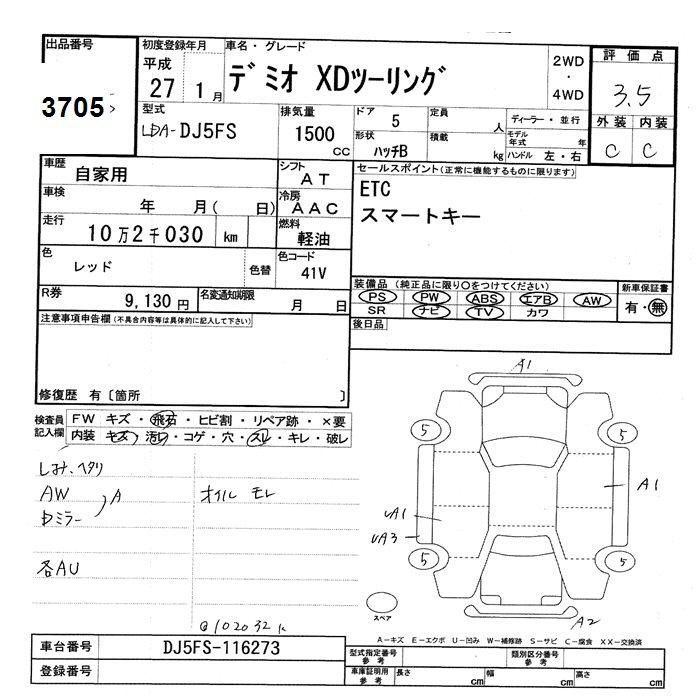 出品番号
3705
初度登録年月
平成
27 1月
車名・グレード
デミオ XDツーリング
2WD
・
4WD
評価点
3.5
外装 内装
C C
型式
LDA-DJ5FS
排気量
1500
CC
ドア 5
形状 ハッチB
定員 人
積載 kg
ディーラー・並行
モデル年式 年
ハンドル 左・右
車歴 自家用
車検 年 月( 日)
走行 10万2千030 km
シフト AT
冷房 AAC
燃料 軽油
色 レッド 色替
色コード 41V
R券 9,130円
名変通知期限 月 日
セールスポイント(正常に機能するものに限ります)
ETC
スマートキー
装備品(純正品に限り○をつけてください)
PS PW ABS エアB AW
SR ナビ TV カワ
新車保証書
有・無
後日品
注意事項申告欄(不具合内容等は具体的に記入して下さい)
修復歴 有〔箇所 〕
検査員
記入欄
FW キズ・飛石・ヒビ割・リペア跡・×要
内装 キズ・汚レ・コゲ・穴・スレ・キレ・破レ
しみ、ヘタリ
AW
Dミラー
A
オイルモレ
各AU
@102032K
A1
5 5
A1
UA1
UA3
5 5
スペア
A2
A−キズ E−エクボ U−凹み W−補修跡 S−サビ C−腐食 XX−交換済
車台番号 DJ5FS-116273
登録番号
型式指定番号
参考
類別区分番号
参考
車庫証明用
参考
長さ cm 幅 cm 高さ cm